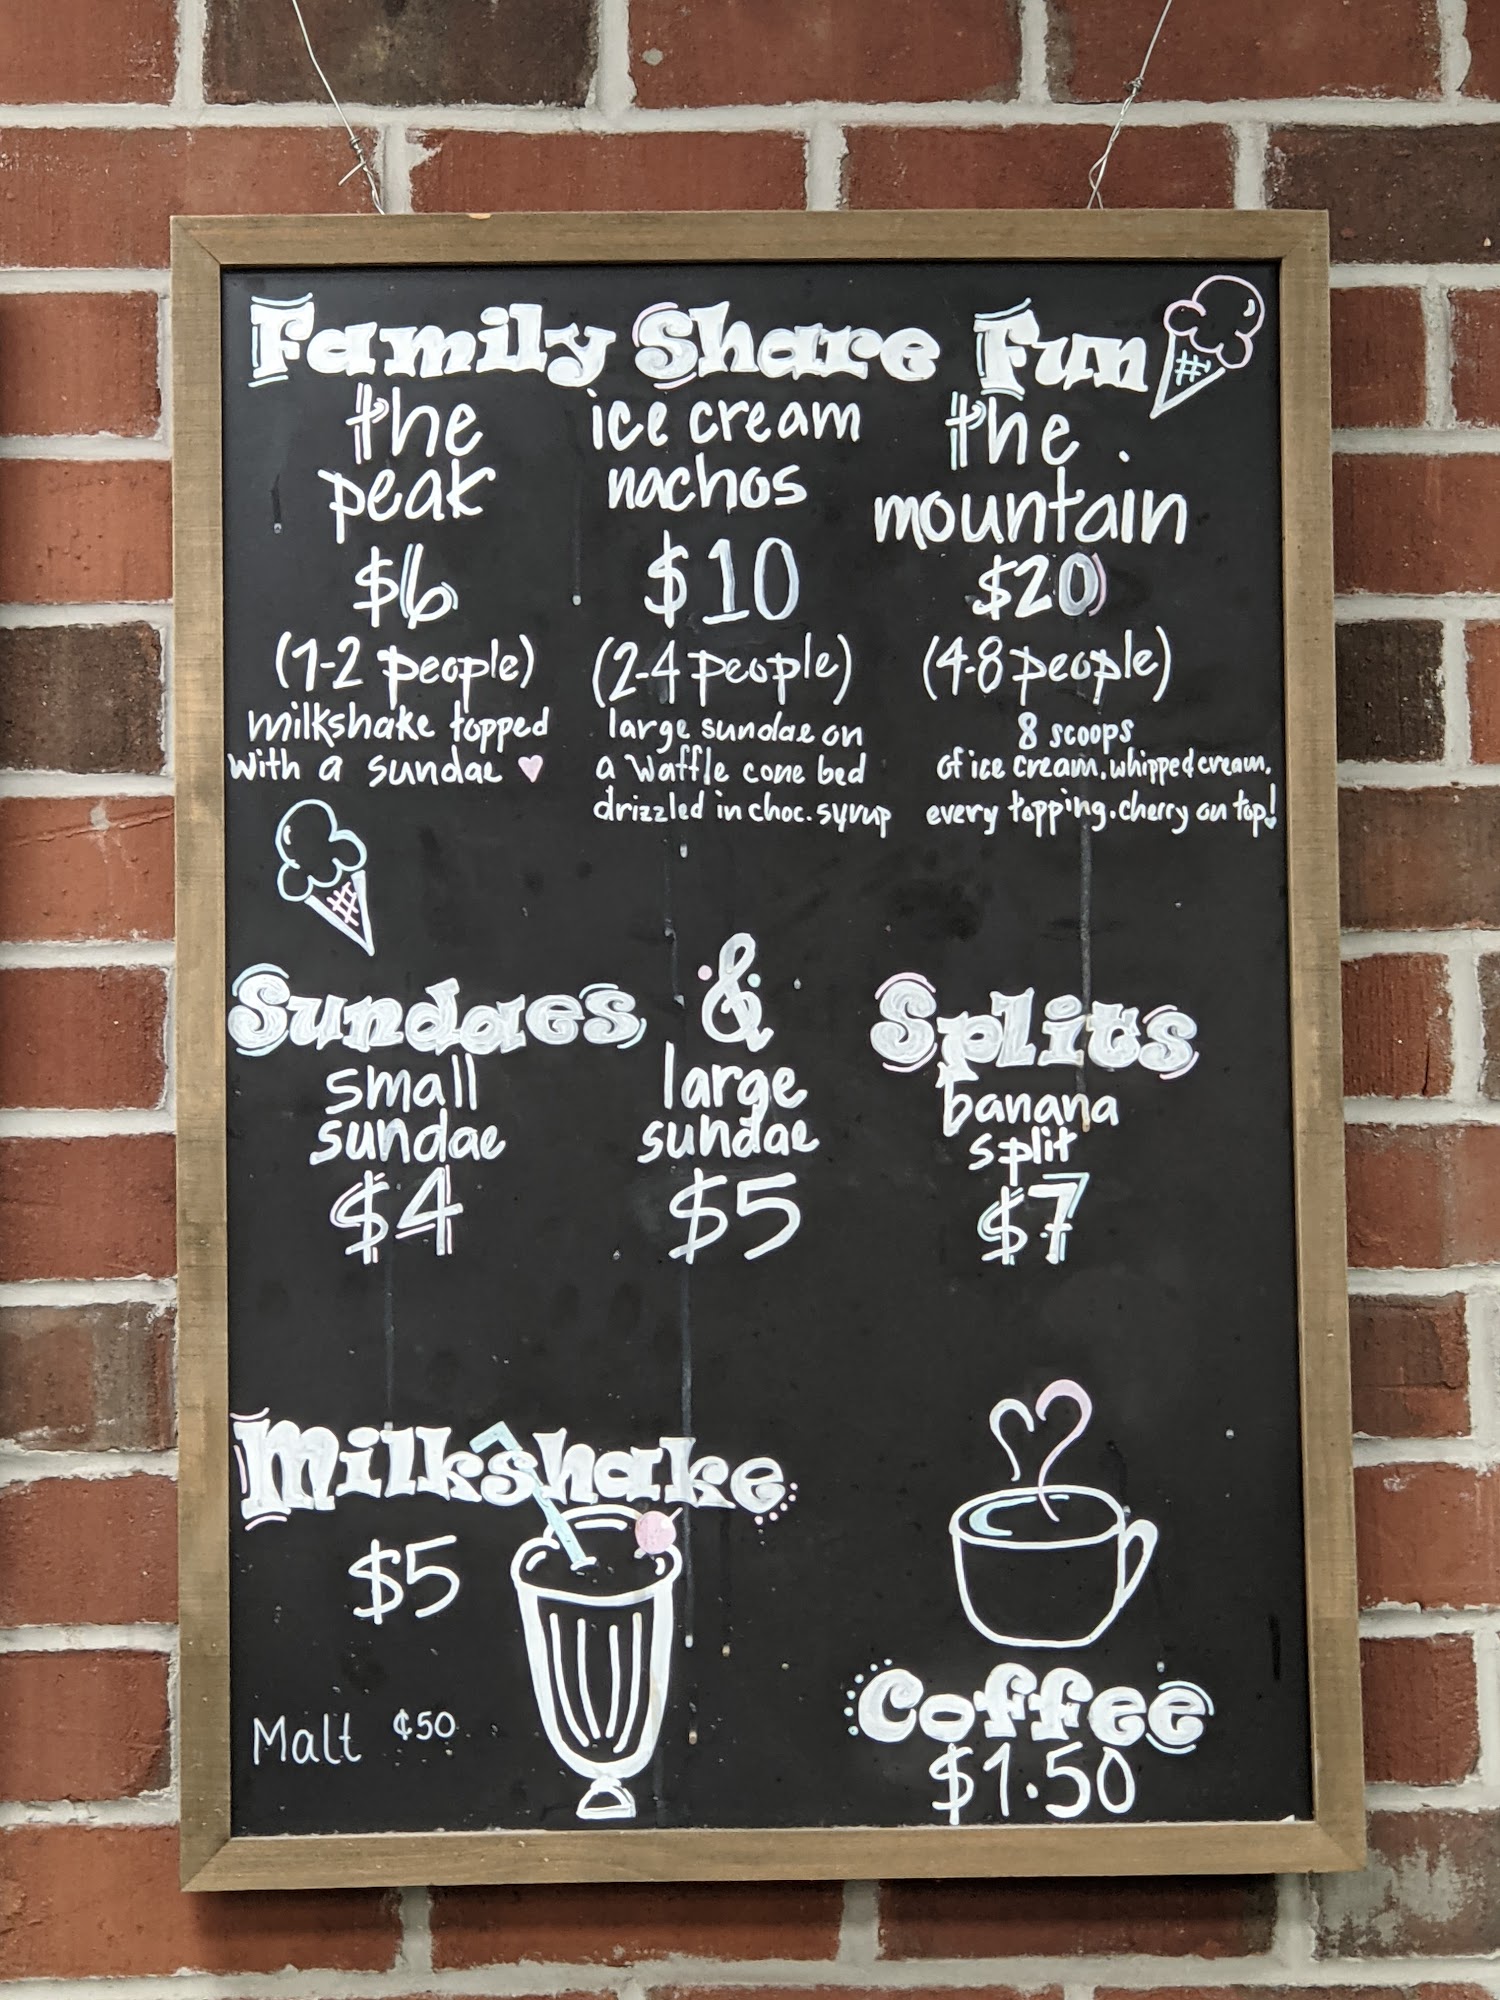 Family Share Fun
the
peak
$6
(1-2 people)
milkshake topped
with a sundae
ice cream
nachos
$10
(2-4 people)
large sundae on
a waffle cone bed
drizzled in choc. syrup
the
mountain
$20
(4-8 people)
8 scoops
of ice cream, whipped cream,
every topping, cherry on top!
Sundaes & Splits
small
sundae
$4
large
sundae
$5
banana
split
$7
Milkshake
$5
Malt ¢50
Coffee
$1.50